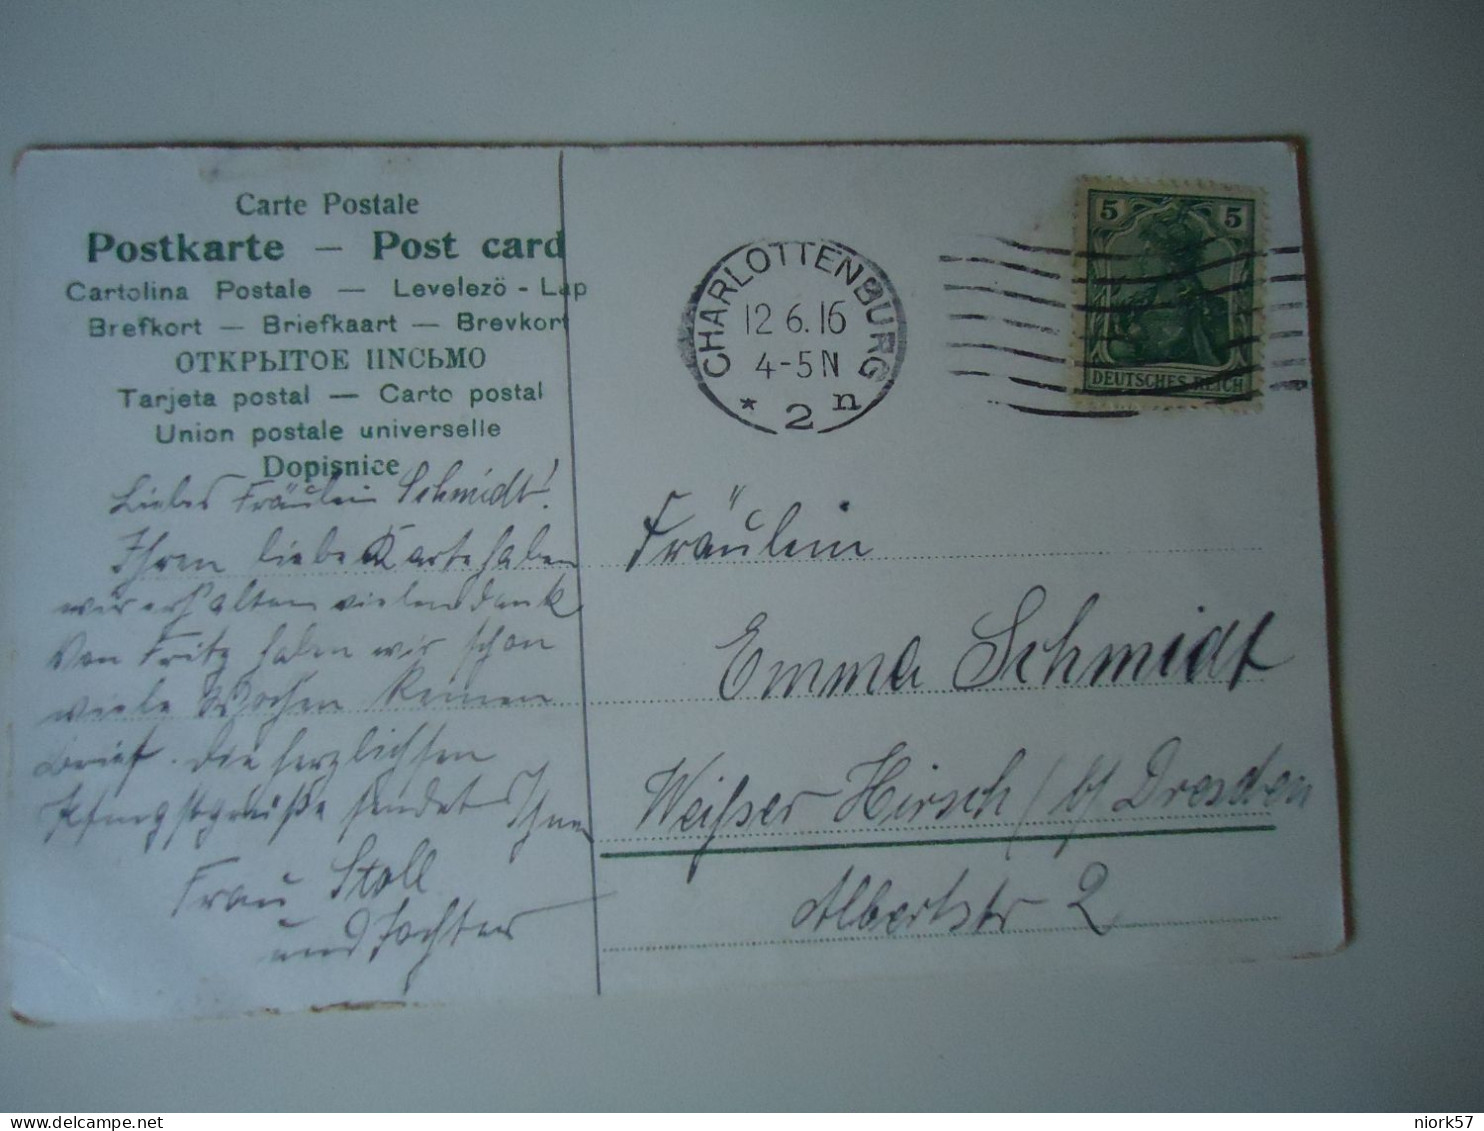 Carte Postale
Postkarte — Post card
Cartolina Postale — Levelező - Lap
Brefkort — Briefkaart — Brevkort
ОТКРЫТОЕ ПИСЬМО
Tarjeta postal — Carto postal
Union postale universelle
Dopisnice
Liebes Fräulein Schmidt!
Ihren liebe Karte haben
wir erhalten vielen dank
Von Fritz haben wir schon
viele Wochen keinen
Brief. Die herzlichsten
Pfingstgrüße sendet Ihnen
Frau Stoll
und Tochter
CHARLOTTENBURG
12.6.16
4-5 N
* 2 n
5 5
DEUTSCHES REICH
Fräulein
Emma Schmidt
Weißer Hirsch / b/ Dresden
Albertstr 2
niork57